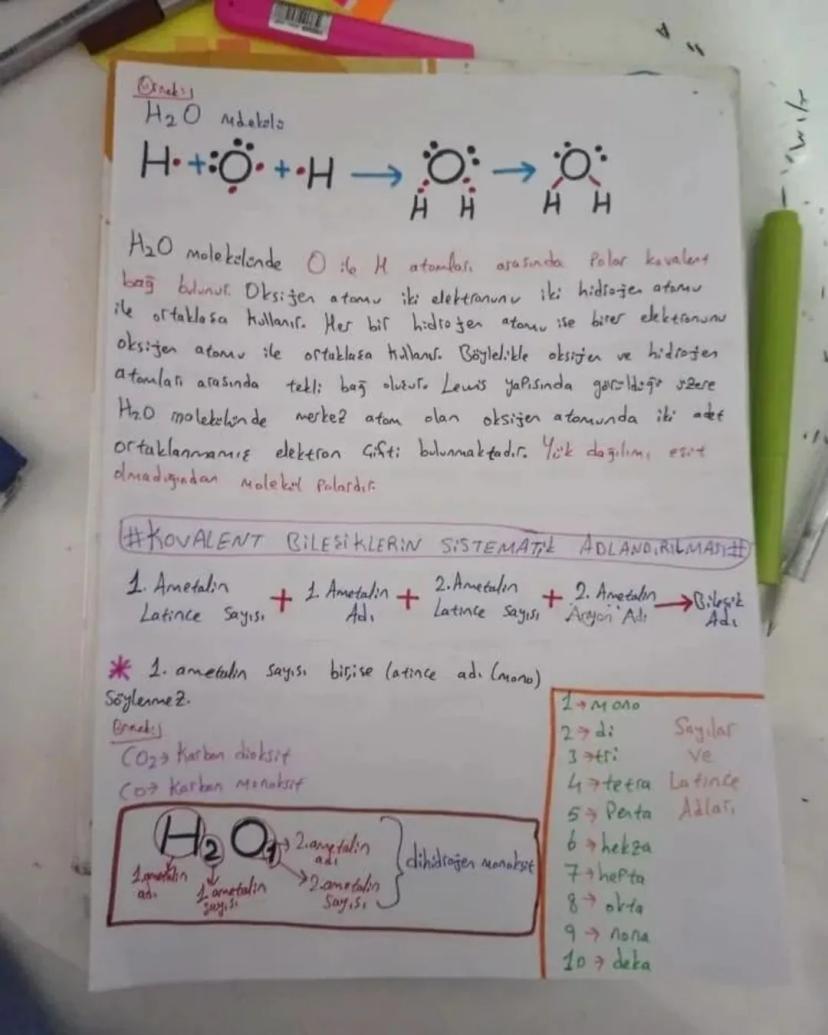 Örnek;
H₂O Molekülü
H· + :Ö· + ·H → O → O
H H H H
H₂O molekülünde O ile H atomları arasında Polar kovalent
bağ bulunur. Oksijen atomu iki elektronunu iki hidrojen atomu
ile ortaklaşa kullanır. Her bir hidrojen atomu ise birer elektronunu
oksijen atomu ile ortaklaşa kullanır. Böylelikle oksijen ve hidrojen
atomları arasında tekli bağ oluşur. Lewis yapısında görüldüğü üzere
H₂O molekülünde merkez atom olan oksijen atomunda iki adet
ortaklanmamış elektron çifti bulunmaktadır. Yük dağılımı eşit
olmadığından molekül Polardır.
#KOVALENT BİLEŞİKLERİN SİSTEMATİK ADLANDIRILMASI#
1. Ametalin Latince Sayısı + 1. Ametalin Adı + 2. Ametalin Latince Sayısı + 2. Ametalin Anyon Adı → Bileşik Adı
* 1. ametalin sayısı bir ise latince adı (mono)
Söylenmez.
Örnek;
CO₂ → Karbon dioksit
CO → Karbon monoksit
H₂O₁ → 2. ametalin adı
1. ametalin adı
1. ametalin sayısı
2. ametalin sayısı
dihidrojen monoksit
1 → Mono
2 → di
3 → tri
4 → tetra
5 → Penta
6 → hekza
7 → hepta
8 → okta
9 → nona
10 → deka
Sayılar
ve
Latince
Adları